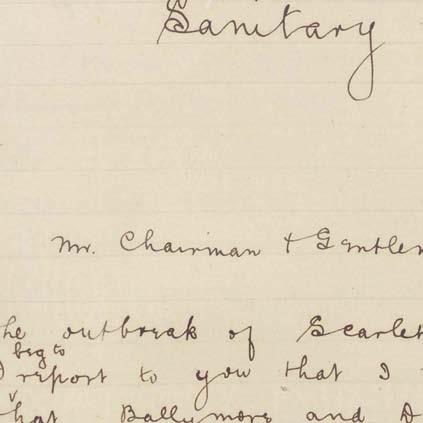 Sanitary
Mr. Chairman & Gentlem
he outbreak of Scarlet
beg to
I report to you that I
hat Ballymore and D